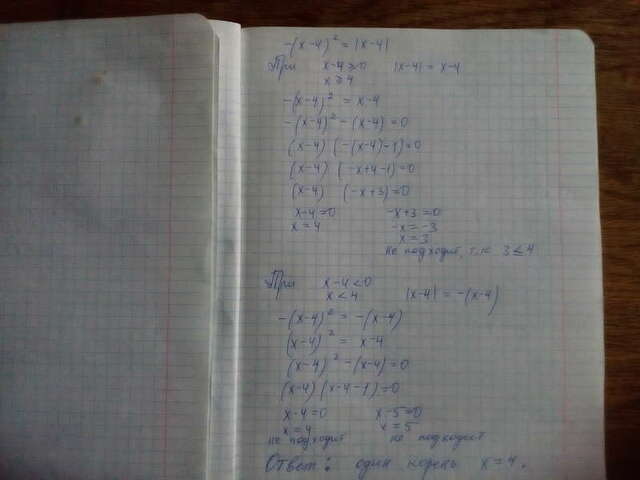 -(x-4)² = |x-4|
При x-4 ≥ 0 |x-4| = x-4
x ≥ 4
-(x-4)² = x-4
-(x-4)² - (x-4) = 0
(x-4) (-(x-4)-1) = 0
(x-4) (-x+4-1) = 0
(x-4) (-x+3) = 0
x-4 = 0 -x+3 = 0
x = 4 -x = -3
x = 3
не подходит, т.к 3 ≤ 4
При x-4 < 0
x < 4 |x-4| = -(x-4)
-(x-4)² = -(x-4)
(x-4)² = x-4
(x-4)² - (x-4) = 0
(x-4) (x-4-1) = 0
x-4 = 0 x-5 = 0
x = 4 x = 5
не подходит не подходит
Ответ: один корень x = 4.